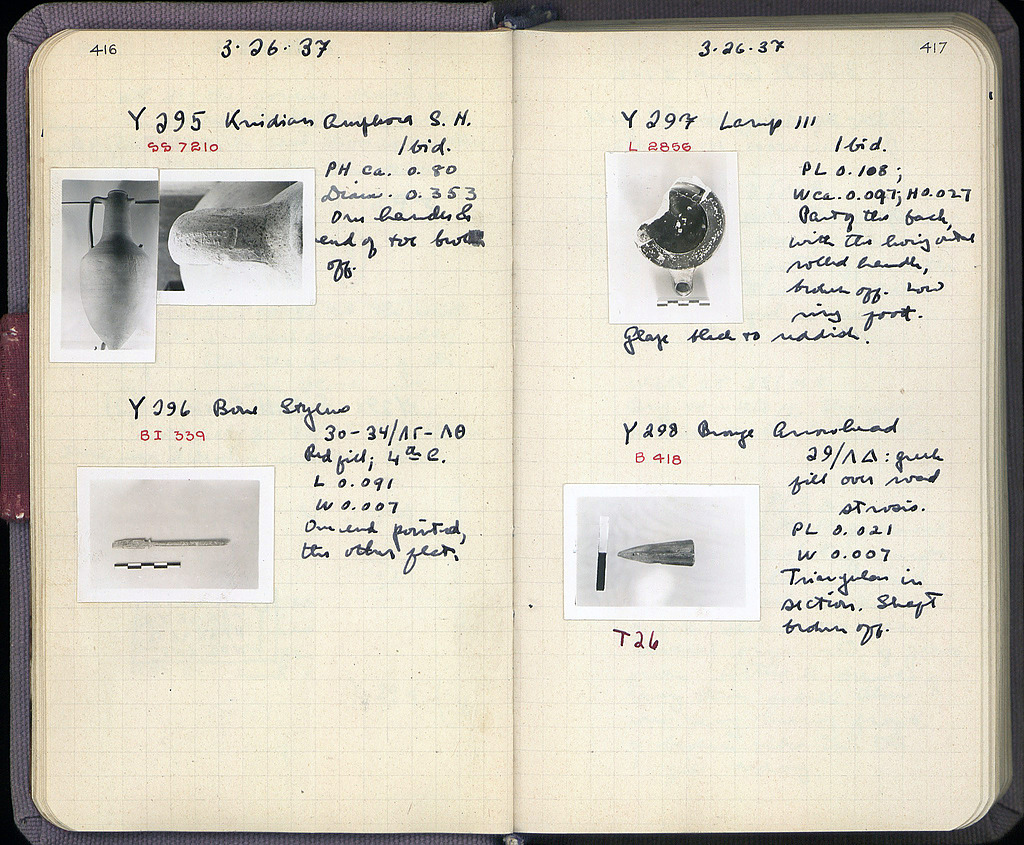 416
3·26·37
Y 295 Knidian Amphora S. H.
SS 7210
Ibid.
PH ca. 0.80
Diam. 0.353
One handle &
end of toe broken
off.
Y 296 Bone Stylus
BI 339
30-34/ΛΓ-ΛΘ
Red fill; 4th C.
L 0.091
W 0.007
One end pointed,
the other flat.
3·26·37
417
Y 297 Lamp III
L 2856
Ibid.
PL 0.108;
W ca. 0.097; H 0.027
Part of the back,
with the horizontal
rolled handle,
broken off. Low
ring foot.
Glaze black to reddish.
Y 298 Bronze Arrowhead
B 418
29/ΛΔ: greek
fill over road
strosis.
PL 0.021
W 0.007
Triangular in
section. Shaft
broken off.
T26